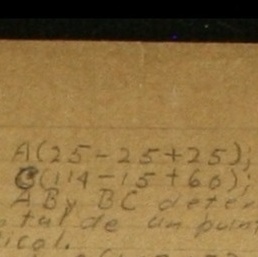 A(25-25+25);
C(114-15+60);
AB y BC deter
tal de un pun
ical.